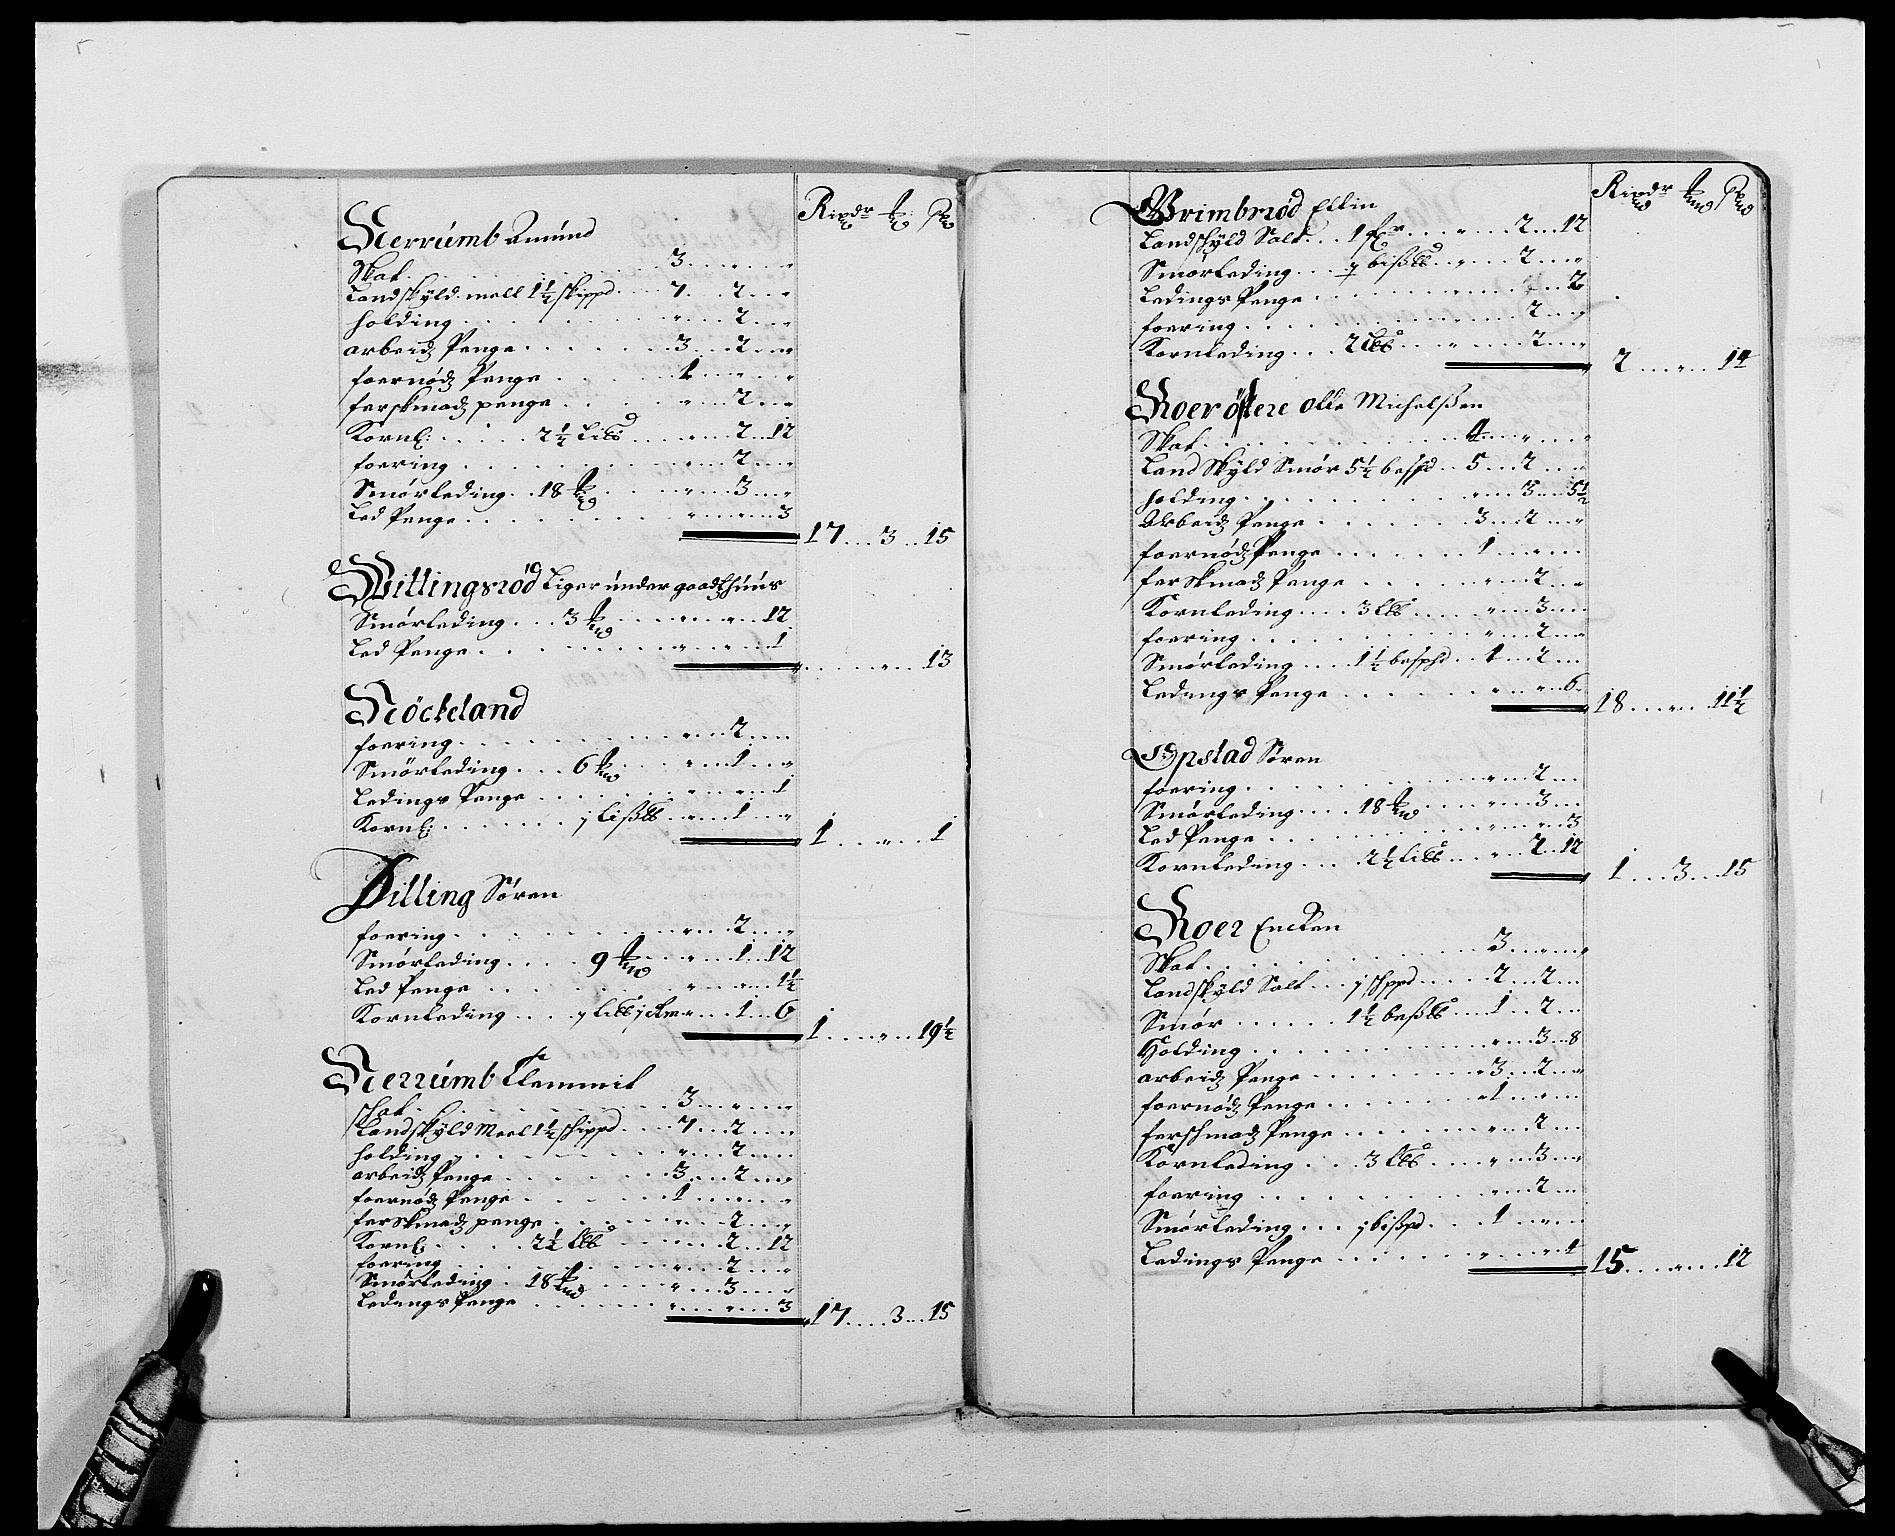 Rixdr
Nerrúmb Amúnd
Skat . . . 3 . . „ . . „
Landskÿld mell 1½ skippd . . 7 . . 2 . . „
holding . . . „ . . 2 . . „
arbeidz Penge . . . 3 . . 2 . . „
foernödz Penge . . . 1 . . „ . . „
ferskmadz penge . . . „ . . 2 . . „
Kornl: . . . 2½ Lißd . . „ . . 2 . . 12
foering . . . „ . . 2 . . „
Smörleding . . 18 . . „ . . 3 . . „
Led Penge . . . „ . . „ . . 3
17 . . 3 . . 15
Willingsröd Liger únder gaardzhúús
Smörleding . . . 3 . . „ . . „ . . 12
Led Penge . . . „ . . „ . . 1
„ . . „ . . 13
Nöckeland
foering . . . „ . . 2 . . „
Smörleding . . . 6 . . „ . . 1 . . „
Ledings Penge . . . „ . . „ . . 1
Kornl: . . . j Liß℔ . . „ . . 1 . . „
1 . . „ . . 1
Dilling Sören
foering . . . „ . . 2 . . „
Smörleding . . . 9 . . „ . . 1 . . 12
Led Penge . . . „ . . „ . . 1½
Kornleding . . . j Liß . . „ . . 1 . . 6
1 . . „ . . 19½
Nerrúmb Clemmit
skat . . . 3 . . „ . . „
Landskÿld Meel 1½ skippd . . 7 . . 2 . . „
holding . . . „ . . 2 . . „
arbeidz Penge . . . 3 . . 2 . . „
foernödz Penge . . . 1 . . „ . . „
ferskmadz penge . . . „ . . 2 . . „
Kornl: . . . 2½ L℔ . . „ . . 2 . . 12
foering . . . „ . . 2 . . „
Smörleding . 18 . . „ . . 3 . . „
Ledings Penge . . . „ . . „ . . 3
17 . . 3 . . 15
Rixdr
Brimbröd Ellin
Landskÿld Salt . . 1 . . „ . . 2 . . 12
Smörleding . . . j biß℔ . . „ . . 2 . . „
Ledings Penge . . . „ . . „ . . 2
foering . . . „ . . 2 . . „
Kornleding . . . 2 L℔ . . „ . . 2 . . „
2 . . „ . . 14
Roer östere Olle Michelßen
Skat . . . 4 . . „ . . „
Land Skÿld Smör 5½ bespd . . 5 . . 2 . . „
holding . . . „ . . 3 . . 5½
Arbeidz Penge . . . 3 . . 2 . . „
foernödz Penge . . . 1 . . „ . . „
ferskmadz Penge . . . „ . . 2 . . „
Kornleding . . . 3 L℔ . . „ . . 3 . . „
foering . . . „ . . 2 . . „
Smörleding . . . 1½ bespd . . 1 . . 2 . . „
Ledings Penge . . . „ . . „ . . 6
18 . . „ . . 11½
Opstad Sören
foering . . . „ . . 2 . . „
Smörleding . . . 18 . . „ . . 3 . . „
Led Penge . . . „ . . „ . . 3
Kornleding . . . 2½ Liß℔ . . „ . . 2 . . 12
1 . . 3 . . 15
Roer Encken
Skat . . . 3 . . „ . . „
Landskÿld Salt . . . j skppd . . 2 . . 2 . . „
Smör . . . 1½ beß℔ . . 1 . . 2 . . „
Holding . . . „ . . 3 . . 8
arbeidz Penge . . . 3 . . 2 . . „
foernödz Penge . . . 1 . . „ . . „
ferskmadz Penge . . . „ . . 2 . . „
Kornleding . . . 3 L℔ . . „ . . 3 . . „
foering . . . „ . . 2 . . „
Smörleding . . . j bißpd . . 1 . . „ . . „
Ledings Penge . . . „ . . „ . . 4
15 . . „ . . 12